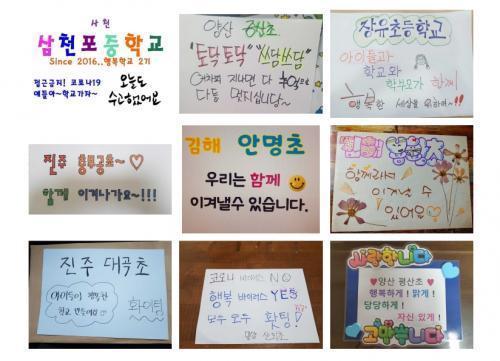 사천
삼천포중학교
Since 2016..행복학교 2기
접근금지! 코로나19
얘들아~학교가자~
오늘도
수고했어요
양산
"토닥토닥" "쓰담쓰담"
어차피 지나면 다 추억으로
다들 멋지십니다~
장유초등학교
아이들과
학교와
학부모가 함께
행복한 세상을 위하여~!!
진주
함께 이겨나가요~!!!
김해 안명초
우리는 함께
이겨낼수 있습니다.
김해
함께라면
이겨낼 수
있어요♡
진주 대곡초
아이들이 행복한
학교 만들어요
화이팅
코로나 바이러스 NO
행복 바이러스 YES
모두 모두 홧팅!
사랑합니다
♥양산 평산초♥
행복하게! 맑게!
당당하게!
자신 있게!
고맙습니다